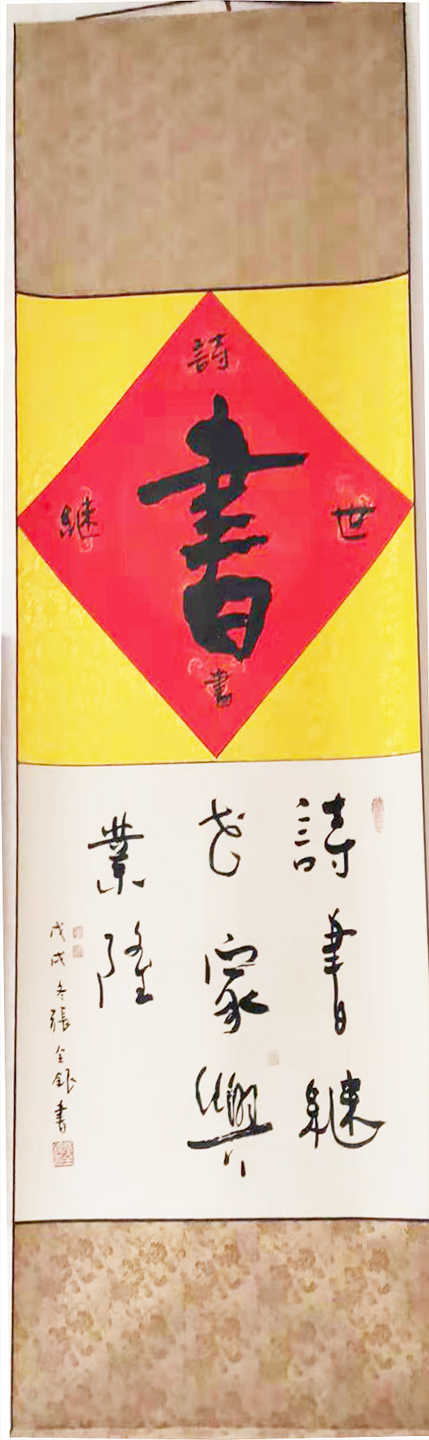 詩
世
書
継
書
詩書継
世家興
業隆
戊戌冬張全銀書